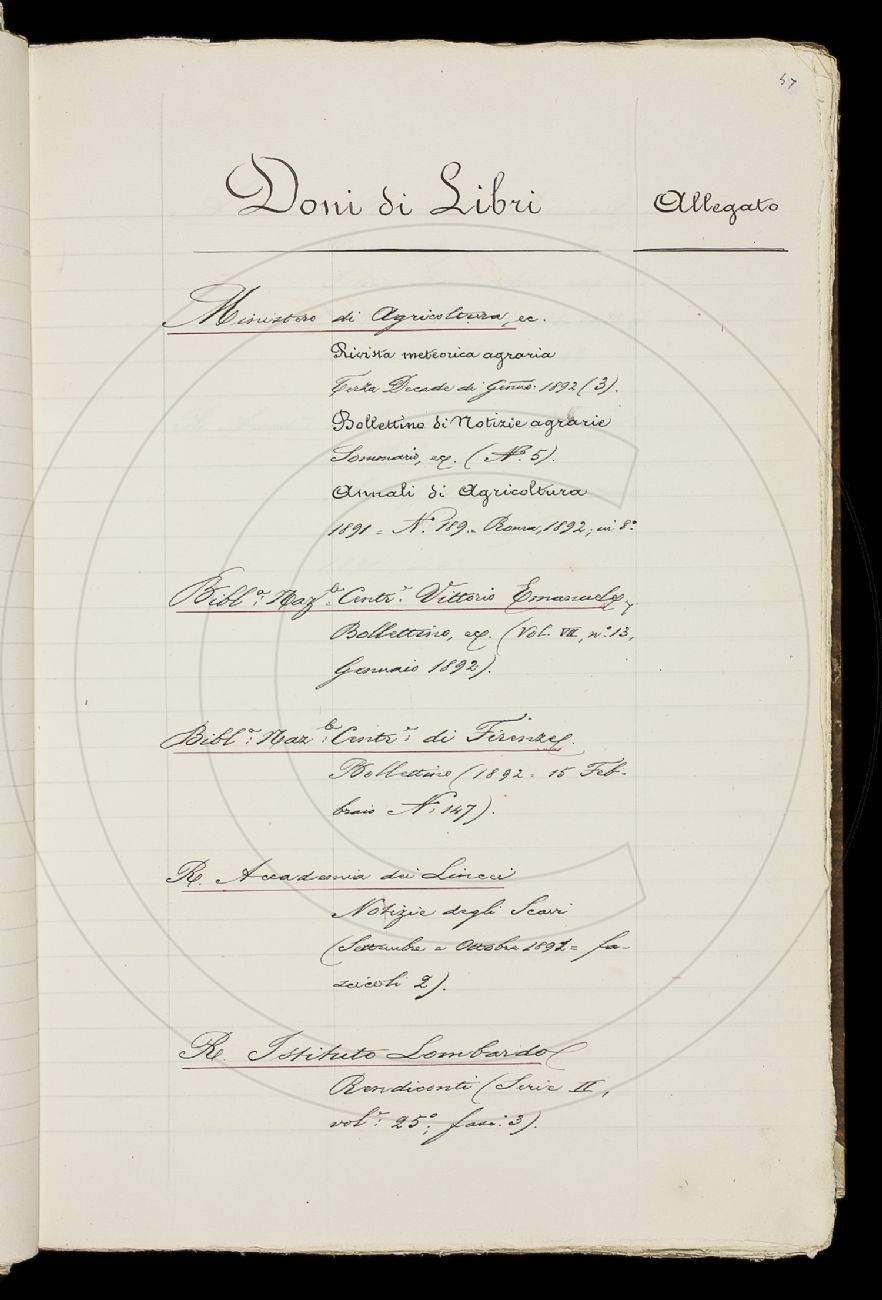 57
Doni di Libri
Allegato
Ministero di Agricoltura, ec.
Rivista meteorica agraria
Terza Decade di Genno: 1892 (3).
Bollettino di Notizie agrarie
Sommario, ec. (No. 5).
Annali di Agricoltura
1891 = N. 189. Roma, 1892; in 8o
Bibla: Nazle: Centre: Vittorio Emanuele
Bollettino, ec. (Vol. VII, no. 13,
Gennaio 1892).
Bibla: Nazle: Centre: di Firenze
Bollettino (1892 = 15 Feb-
braio No: 147).
R. Accademia dei Lincei
Notizie degli Scavi
(Settembre e Ottobre 1891 = fa-
scicoli 2).
R. Istituto Lombardo
Rendiconti (Serie II,
vole: 25o; fasc: 3).